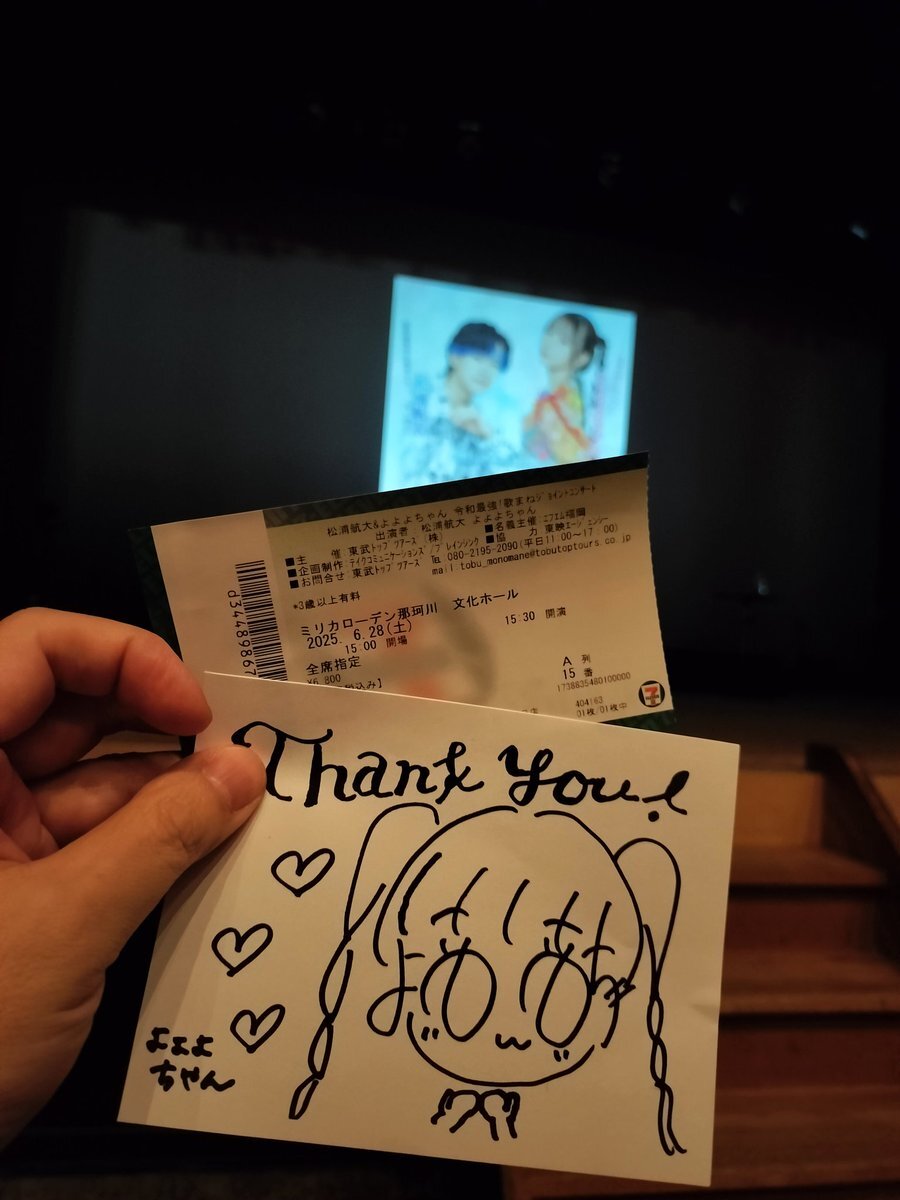 松浦航大&よよよちゃん 令和最強!歌まねジョイントコンサート
出演者 松浦航大 よよよちゃん
■主 催 東武トップツアーズ(株) ■名義主催:エフエム福岡
■企画制作 テイクコミュニケーションズ/ブレインシンク ■協 力 東映エージェンシー
■お問合せ 東武トップツアーズ TEL 080-2195-2090(平日11:00~17:00)
mail:tobu_monomane@tobutoptours.co.jp
*3歳以上有料
ミリカローデン那珂川 文化ホール
2025. 6.28(土) 15:30 開演
15:00 開場
全席指定 A 列
¥6,800 15 番
税込み】 1738835480100000
404163
01枚/01枚中
d3448986
Thank you!
よよよ
ちゃん